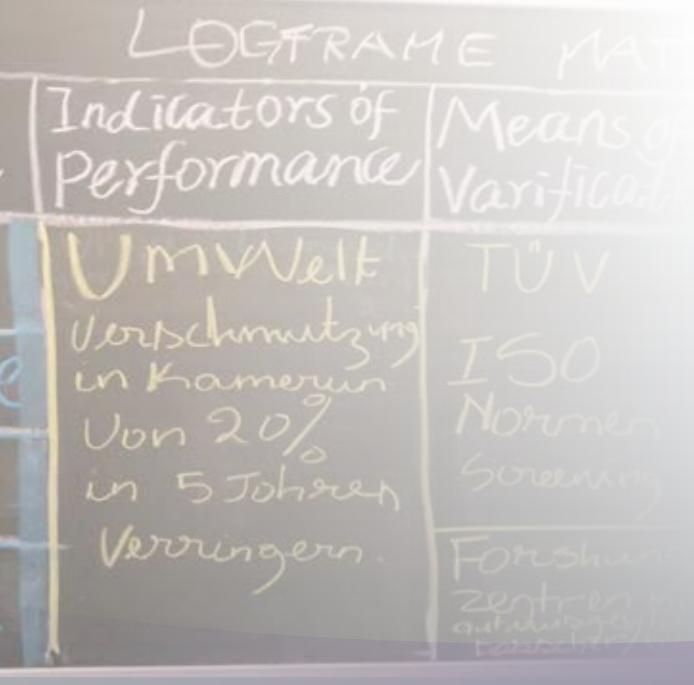 LOGFRAME MAT
Indicators of
Performance
Means of
Varificat
UmWelt
Verschmutzung
in Kamerun
Von 20%
in 5 Johren
Verringern.
TÜV
ISO
Normen
Screening
Forshun
zentren